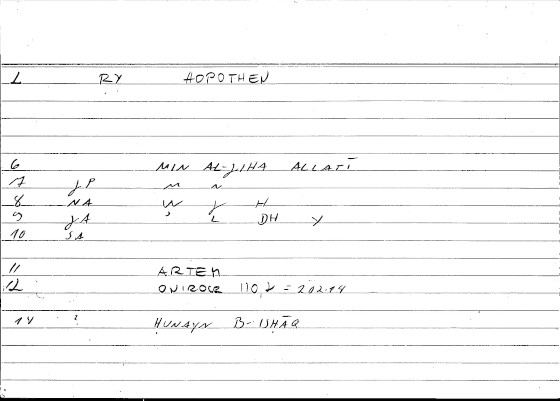 1 RY AOPOTHEN
6 MIN AL-ǦIHA ALLATĪ
7 ǧP M N
8 NA W ǧ H
9 ǧA ʾ L DH Y
10 SA
11 ARTEM
12 ONIROCR 110, = 202.14
14 ? ḤUNAYN B-ISḤĀQ